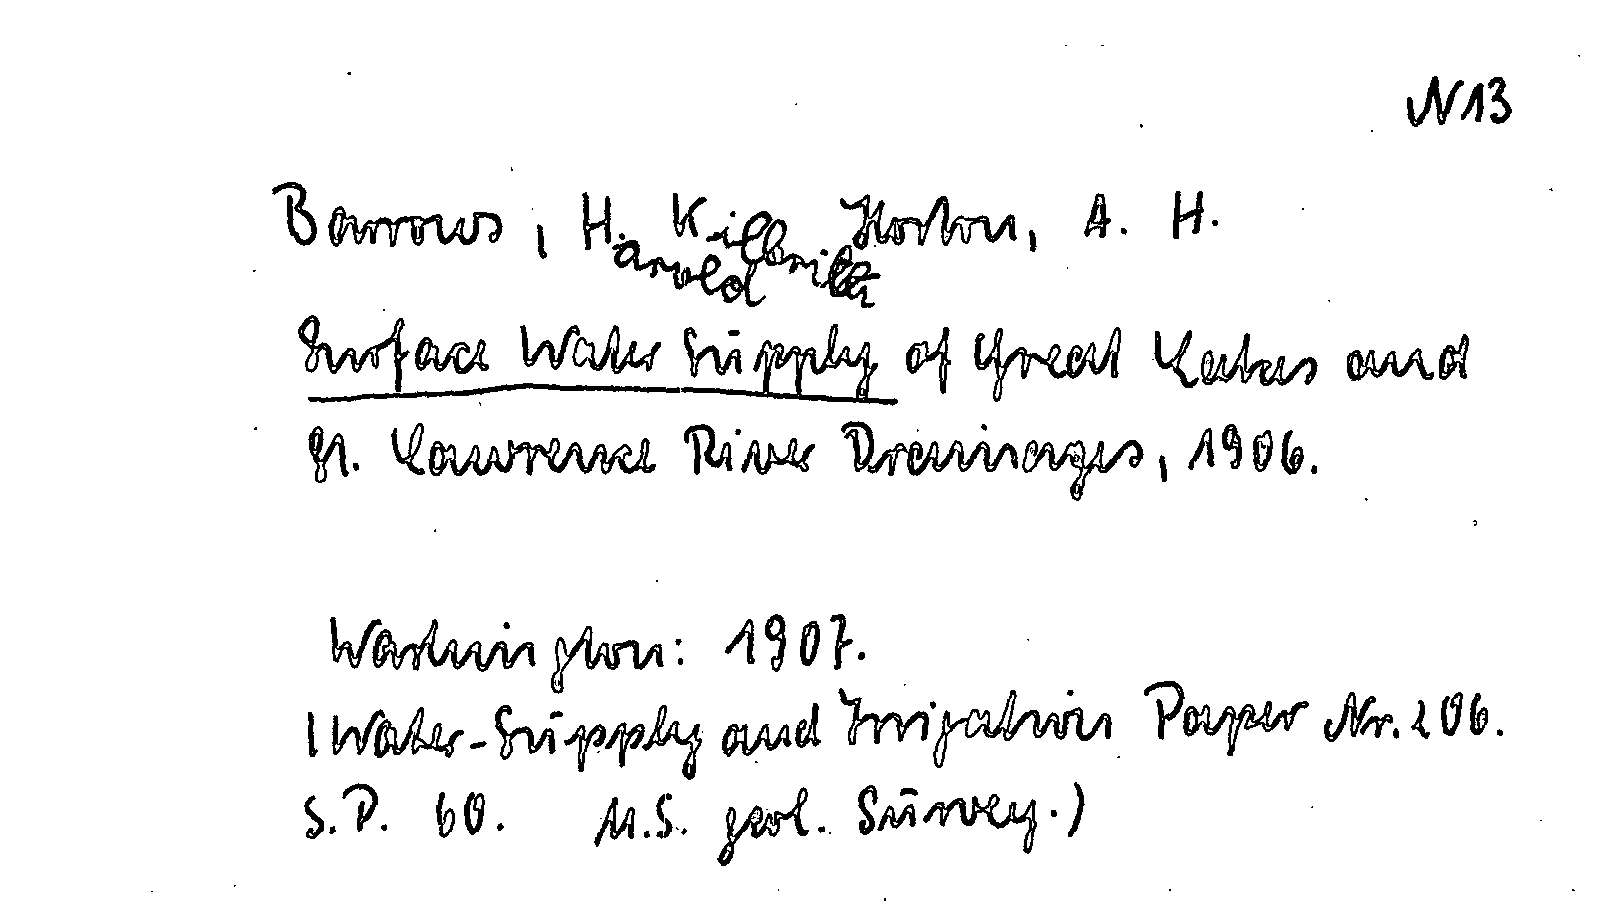 N13
Barrows, H. Kilbrith Horton, A. H.
arold
Surface Water Supply of Great Lakes and
St. Lawrence River Drainages, 1906.
Washington: 1907.
(Water-Supply and Irrigation Paper Nr. 206.
S.P. 60. U.S. geol. Survey.)